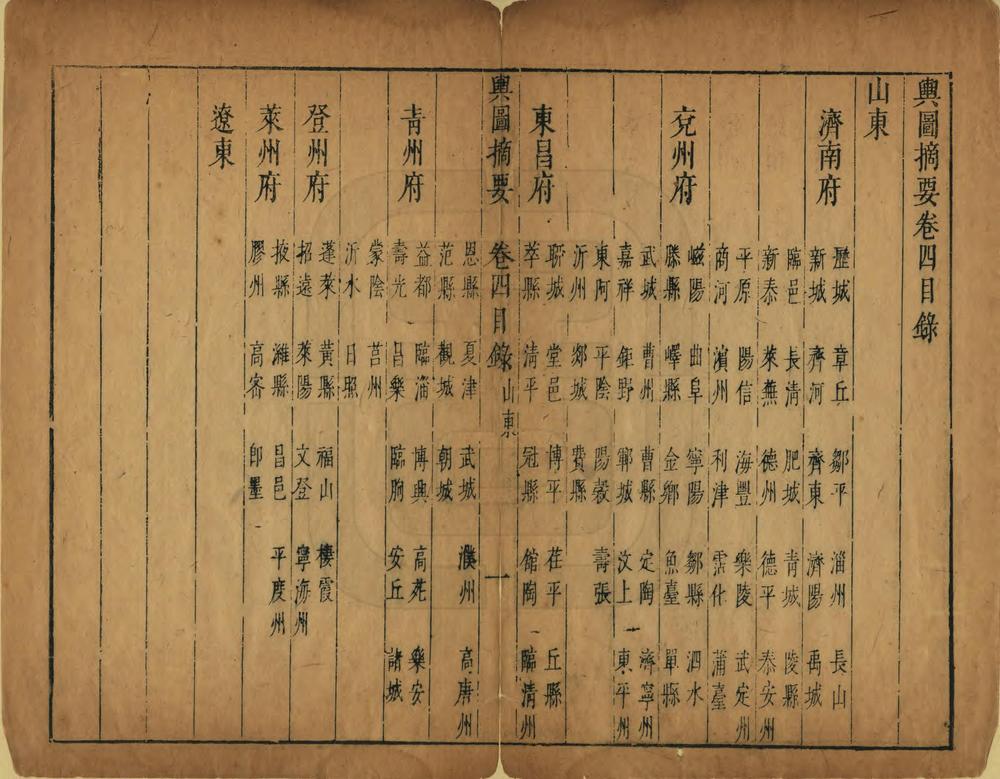 輿圖摘要卷四目錄
山東
濟南府
歷城 章丘 鄒平 淄州 長山
新城 齊河 齊東 濟陽 禹城
臨邑 長清 肥城 青城 陵縣
新泰 萊蕪 德州 德平 泰安州
平原 陽信 海豐 樂陵 武定州
商河 濱州 利津 霑化 蒲臺
兗州府
嵫陽 曲阜 寧陽 鄒縣 泗水
滕縣 嶧縣 金鄉 魚臺 單縣
武城 曹州 曹縣 定陶 濟寧州
嘉祥 鉅野 鄆城 汶上 東平州
東阿 平陰 陽穀 壽張
沂州 郯城 費縣
東昌府
聊城 堂邑 博平 茌平 丘縣
莘縣 清平 冠縣 館陶 臨清州
輿圖摘要 卷四目錄 山東 一
恩縣 夏津 武城 濮州 高唐州
范縣 觀城 朝城
青州府
益都 臨淄 博興 高苑 樂安
壽光 昌樂 臨朐 安丘 諸城
蒙陰 莒州
沂水 日照
登州府
蓬萊 黃縣 福山 棲霞
招遠 萊陽 文登 寧海州
萊州府
掖縣 濰縣 昌邑 平度州
膠州 高密 即墨
遼東